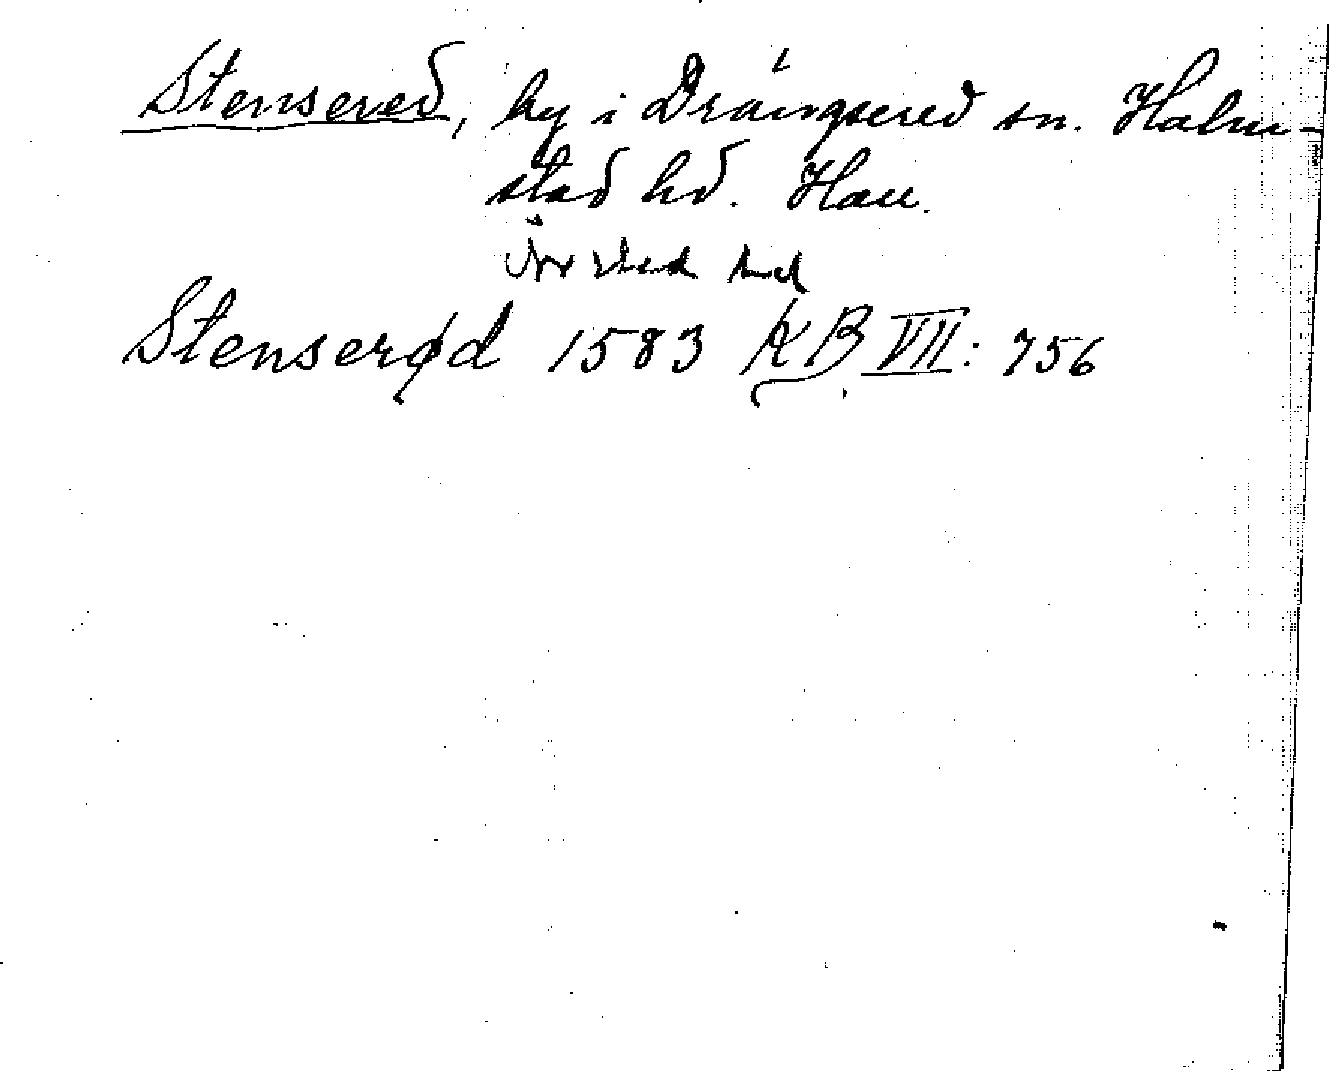 Stensered, by i Drängsered sn. Halm-
stad hd. Hall.
Årstad hd
Stenserød 1583 KB VII: 756